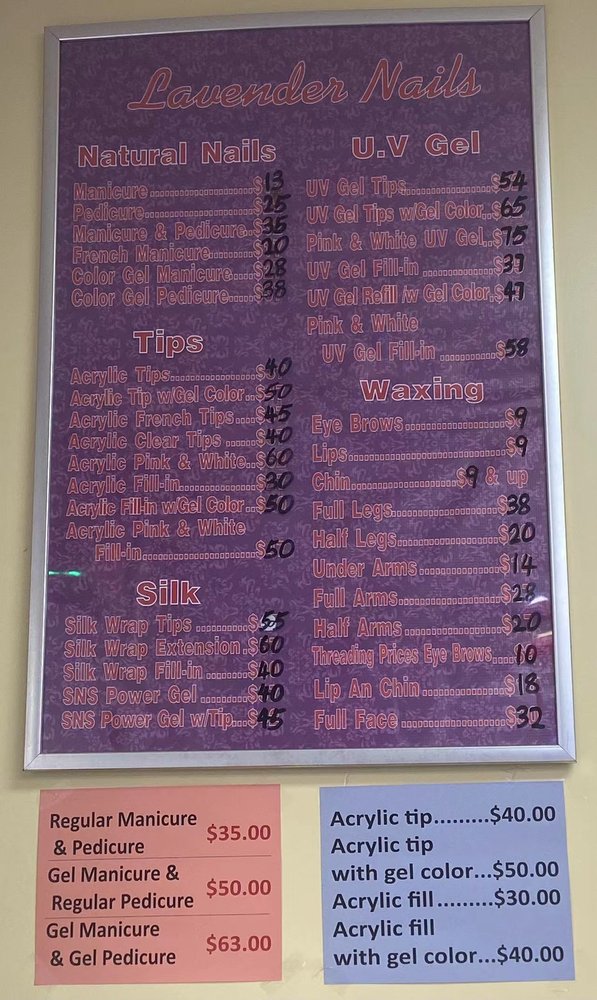 Lavender Nails
Natural Nails
Manicure....................$13
Pedicure....................$25
Manicure & Pedicure..$35
French Manicure.........$20
Color Gel Manicure.....$28
Color Gel Pedicure.....$38
Tips
Acrylic Tips................$40
Acrylic Tip w/Gel Color..$50
Acrylic French Tips....$45
Acrylic Clear Tips ......$40
Acrylic Pink & White..$60
Acrylic Fill-in..............$30
Acrylic Fill-in w/Gel Color..$50
Acrylic Pink & White
Fill-in......................$50
Silk
Silk Wrap Tips ..........$55
Silk Wrap Extension.$60
Silk Wrap Fill-in ........$40
SNS Power Gel .........$40
SNS Power Gel w/Tip...$45
U.V Gel
UV Gel Tips................$54
UV Gel Tips w/Gel Color..$65
Pink & White UV Gel..$75
UV Gel Fill-in .............$37
UV Gel Refill /w Gel Color.$47
Pink & White
UV Gel Fill-in ..........$58
Waxing
Eye Brows..................$9
Lips............................$9
Chin...................$9 & up
Full Legs...................$38
Half Legs...................$20
Under Arms...............$14
Full Arms..................$28
Half Arms..................$20
Threading Prices Eye Brows....10
Lip An Chin...............$18
Full Face ...................$32
Regular Manicure
& Pedicure $35.00
Gel Manicure &
Regular Pedicure $50.00
Gel Manicure
& Gel Pedicure $63.00
Acrylic tip.........$40.00
Acrylic tip
with gel color...$50.00
Acrylic fill.........$30.00
Acrylic fill
with gel color...$40.00